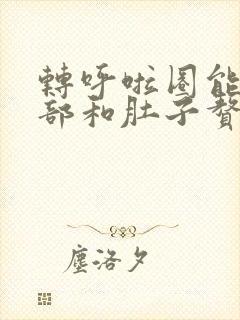 轉呼啦圈能
部和肚子贅
塵洛夕